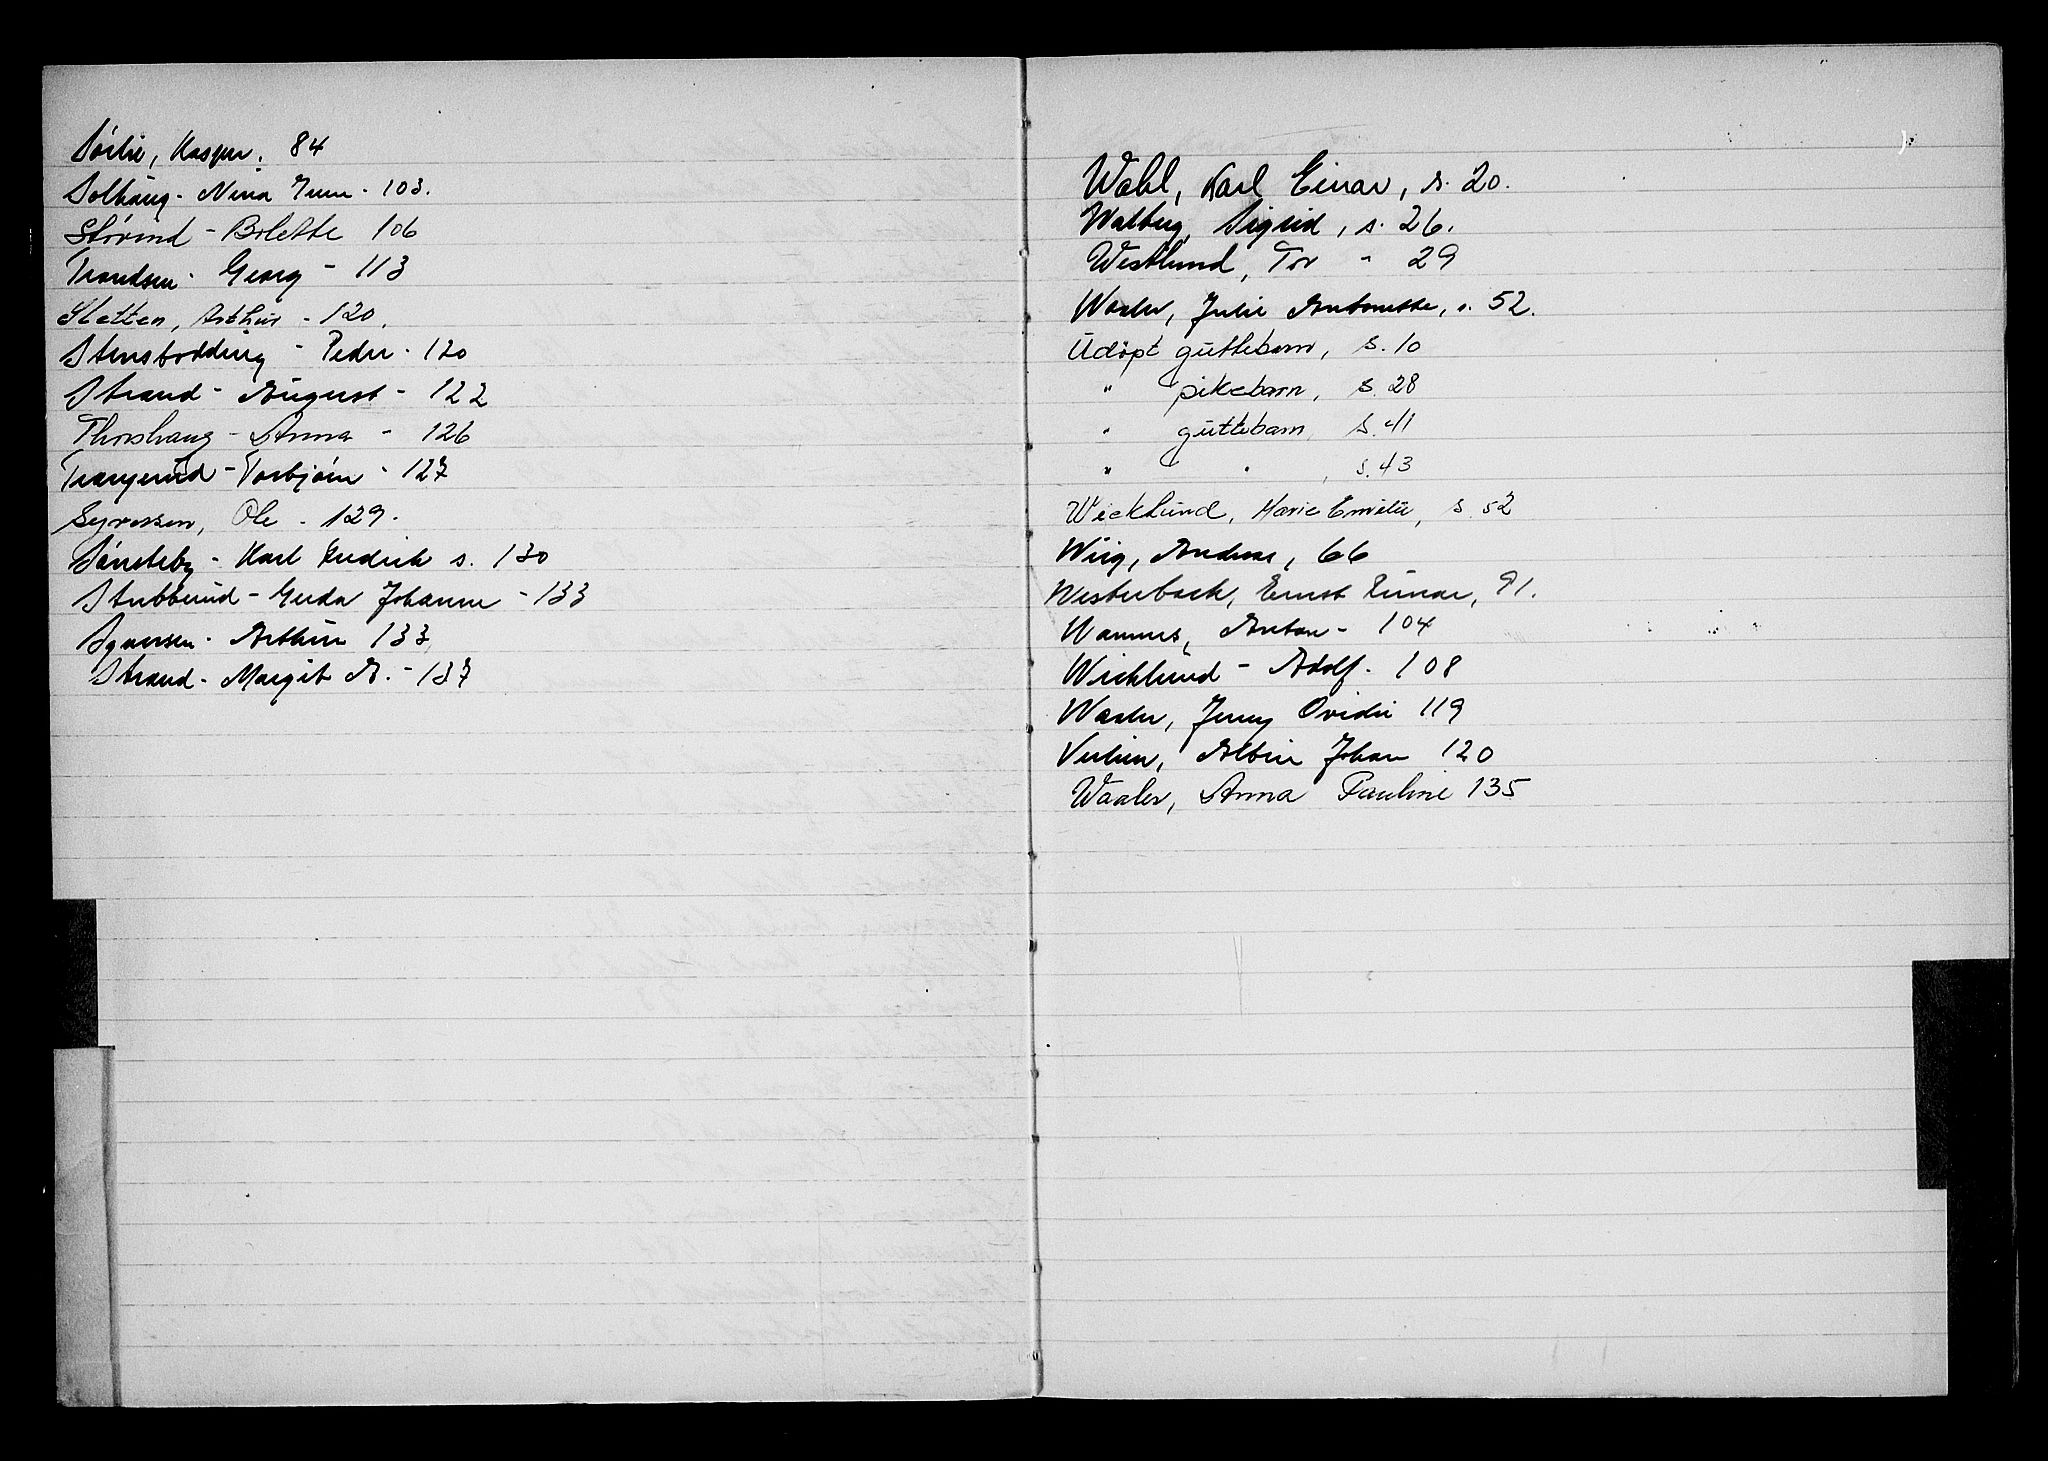 Sørlie, Kaspar. 84
Solhaug - Nina June - 103.
Størind - Bolette 106
Trondsen - Georg - 113
Sletten, Arthur - 120.
Stensbødding - Peder - 120
Strand - August - 122
Thorshaug - Anna - 126
Trangerud - Torbjørn - 127
Syversen, Ole - 129.
Sønsteby - Karl Fredrik s. 130
Stubberud - Gerda Johanne - 133
Syversen - Arthur 133
Strand - Margit A. - 137
Wahl, Karl Einar, s. 20.
Walberg, Sigrid, s. 26.
Westlund, Tor " 29
Waaler, Julie Antonette, s. 52.
Udøpt guttebarn, s. 10
" pikebarn, s. 28
" guttebarn, s. 41
" " , s. 43
Wicklund, Marie Emilie, s. 52
Wiig, Andreas, 66
Westerback, Ernst Runar, 91.
Warnes, Anton - 104
Wicklund - Adolf - 108
Waaler, Jenny Ovidie 119
Verlien, Albin Johan 120
Waaler, Anna Pauline 135